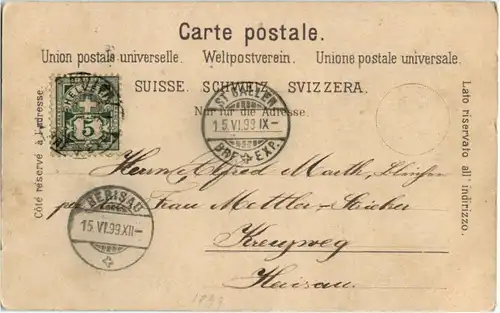 Carte postale.
Union postale universelle. Weltpostverein. Unione postale universale.
SUISSE. SCHWEIZ. SVIZZERA.
Nur für die Adresse.
Côté réservé à l'adresse.
Lato riservato all' indirizzo.
HELVETIA
5
ST. GALLEN
15.VI.99.IX-
BRF. EXP.
HERISAU
15.VI.99.XII-
Herrn Alfred
Frau Mettler-
Kreuzweg
Herisau.
1899